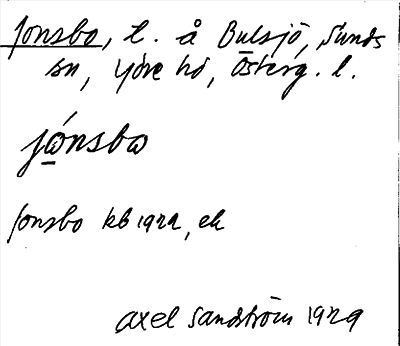 Jonsbo, l. å Bulsjö, Sunds
sn, Ydre hd, Österg. l.
jónsbo
Jonsbo kb 1922, ek
Axel Sandström 1929